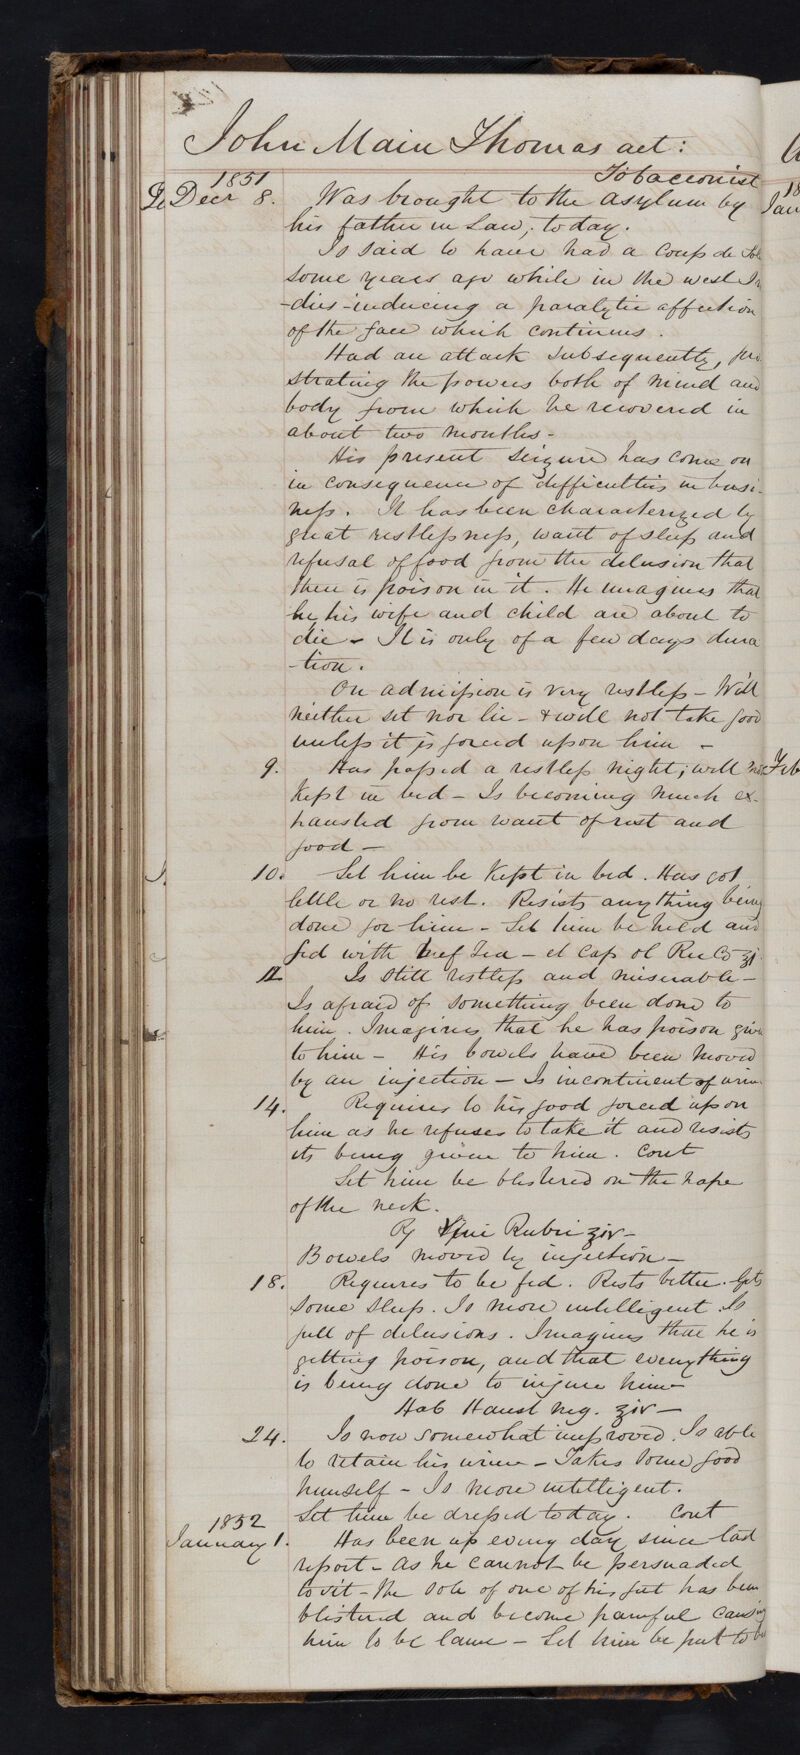 John Main Thomas aet:
Tobacconist
1851
Decr 8. Was brought to the asylum by
his father in Law, today.
Is said to have had a Coup de Sol
some years ago while in the west In
-dies-inducing a paralytic affection
of the face which continues.
Had an attack subsequently, pro
strating the powers both of mind and
body from which he recovered in
about two months-
His present seizure has come on
in consequence of difficulties in busi-
ness. It has been characterized by
great restlessness, want of sleep and
refusal of food from the delusion that
there is poison in it. He imagines that
he, his wife and child are about to
die- It is only of a few days dura
-tion.
On admission is very restless- Will
neither set nor lie- & will not take food
unless it is forced upon him -
9. Has passed a restless night; will not
Kept in bed- Is becoming much ex-
hausted from want of rest and
food-
10. Let him be Kept in bed. Has got
little or no rest. Resists anything being
done for him- Let him be held and
fed with beef Tea- et Cap ol Ricini ʒj
12 Is still restless and miserable-
Is afraid of something been done to
him. Imagines that he has poison given
to him- His bowels have been moved
by an injection- Is incontinent of urine
14. Requires to his food forced upon
him as he refuses to take it and resists
its being given to him. Cont
Let him be blistered on the nape
of the neck.
℞ Vini Rubri ℥iv-
Bowels moved by injection-
18. Requires to be fed. Rests better. Gets
some sleep. Is more intelligent. Is
full of delusions. Imagines that he is
getting poison, and that everything
is being done to injure him-
Hab Haust nig. ℥iv-
24. Is now somewhat improved. Is able
to retain his urine- Takes some food
himself- Is more intelligent.
Let him be dressed today. Cont
1852
January 1. Has been up every day since last
report- As he cannot be persuaded
to sit- the sole of one of his feet has been
blistered and become painful causing
him to be lame- Let him be put to bed
18
Jan
Feb